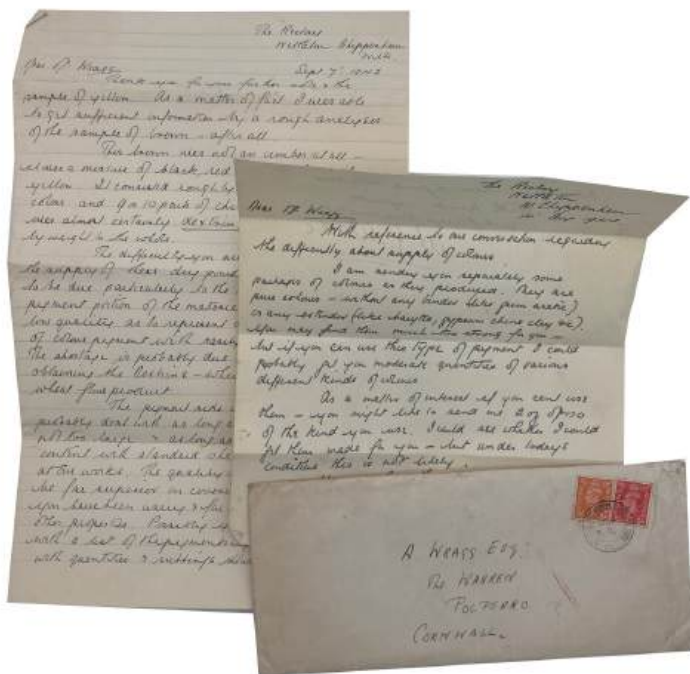 The
Chippenham
Wilts
Sept 7th 1942
Dear Mr Wragg
Thank you for your further note & the
sample of yellow. As a matter of fact I was able
to get sufficient information by a rough analysis
of the sample of brown - after all.
This brown was not an umber at all -
it was a mixture of black, red
yellow. It consisted roughly
colour and 90 parts of
was almost certainly
by weight in the white.
The difficulty you are
the supply of these dry
to be due particularly to the
pigment portion of the material
low quality as to represent
of colour pigment with
The shortage is probably due
obtaining the
what fine product
The pigment side
probably deal with as long
not too large & as long as
content with standard
at our works. The quality
be far superior in
you have been using & for
other properties. Possibly
with a list of the pigments
with quantities &
The
Chippenham
Dear Mr Wragg
With reference to our conversation regarding
the difficulty about supply of colours
I am sending you separately some
packages of colours as they produced. They are
pure colours - without any binder (like gum arabic)
or any extender (like barytes, gypsum china clay etc).
You may find them much too strong for you -
but if you can use this type of pigment I could
probably get you moderate quantities of various
different kinds of colours
As a matter of interest if you cant use
them - you might like to send me 2 oz or so
of the kind you use. I could see whether I could
get them made for you - but under todays
conditions this is not likely.
A WRAGG ESQ.
THE WARREN
POLPERRO
CORNWALL